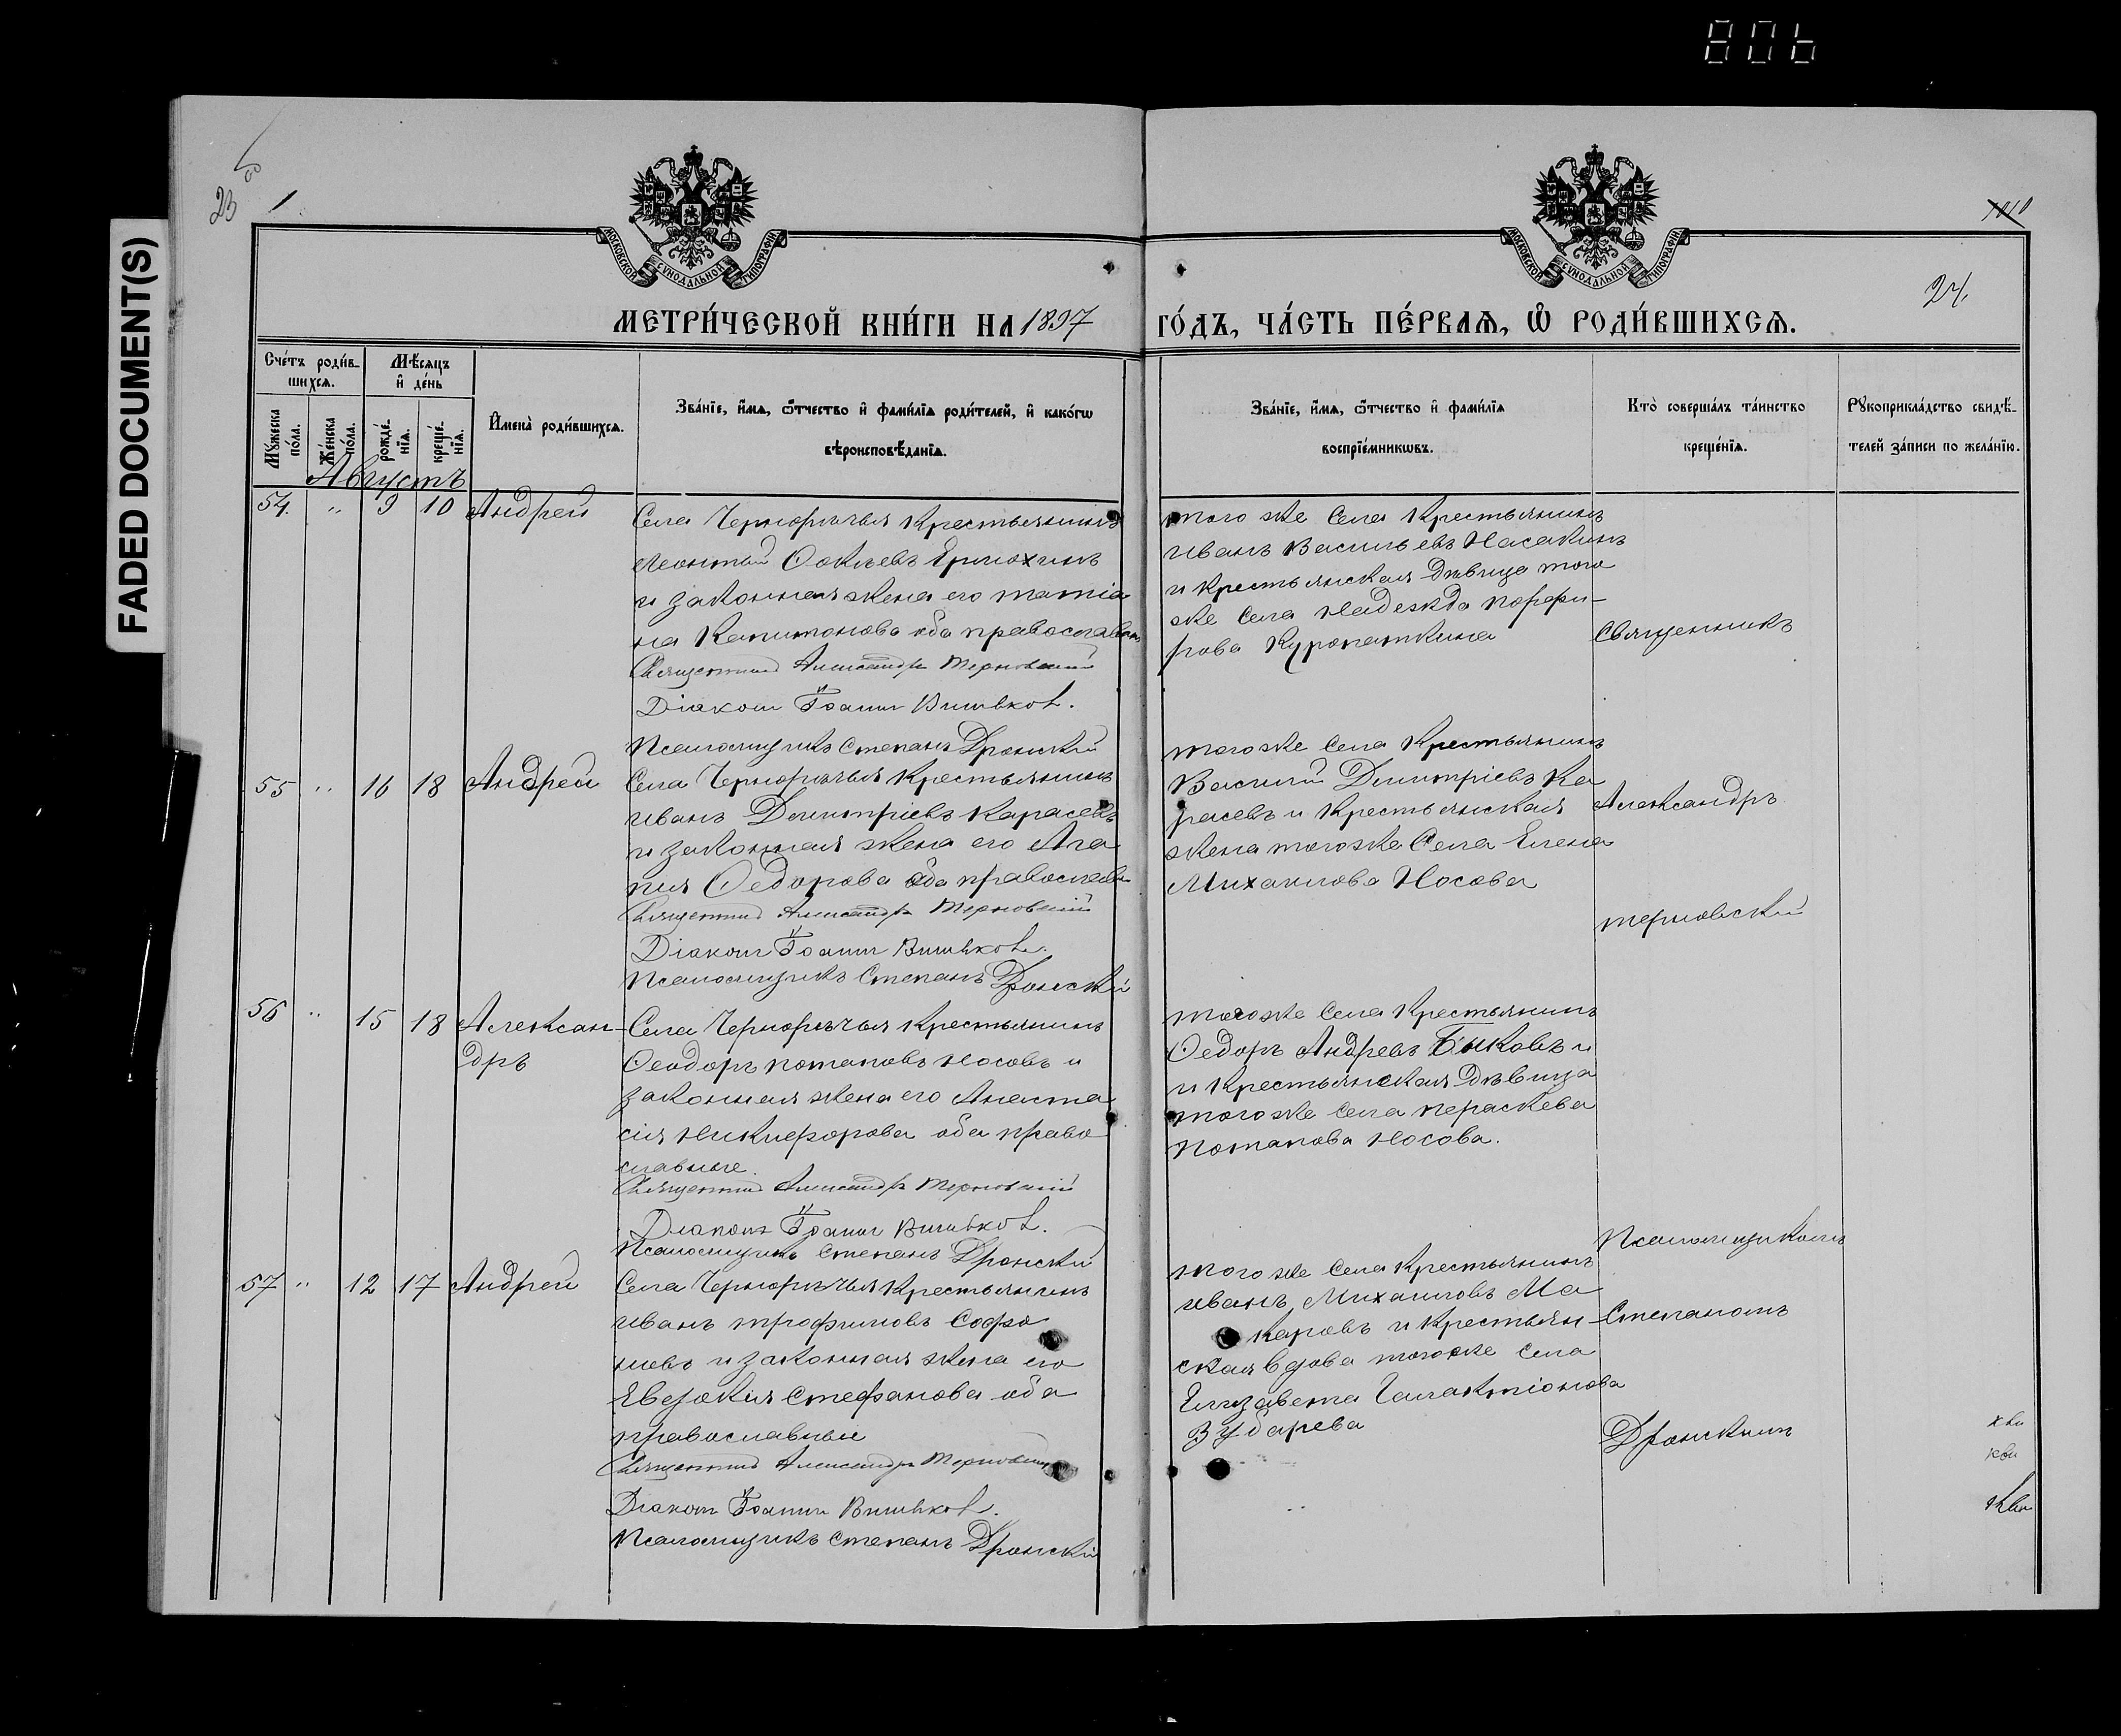 806
FADED DOCUMENT(S)
23
МОСКОВСКОЙ СѴНОДАЛЬНОЙ ТИПОГРАФІИ
МОСКОВСКОЙ СѴНОДАЛЬНОЙ ТИПОГРАФІИ
1010
24.
МЕТРИ́ЧЕСКОЙ КНИ́ГИ НА 1897
ГО́ДЪ, ЧА́СТЬ ПЕ́РВАЯ, Ѡ҆ РОДИ́ВШИХСЯ.
Сче́тъ роди́в-
шихся.
Мѣ́сяцъ
и҆ де́нь
Му́жеска
по́ла.
Же́нска
по́ла.
рожде́-
нїя.
креще́-
нїя.
И҆мена̀ роди́вшихся.
Зва́нїе, и҆́мя, ѻ҆́тчество и҆ фами́лїя роди́телей, и҆ како́гѡ
вѣроисповѣ́данїя.
Зва́нїе, и҆́мя, ѻ҆́тчество и҆ фами́лїя
воспрїе́мникѡвъ.
Кто̀ соверша́лъ та́инство
креще́нїя.
Рꙋкоприкла́дство свидѣ́-
телей за́писи по жела́нїю.
Августъ
54. " 9 10 Андрей
Села Чернорѣчья Крестьянинъ
Леонтий Фокиевъ Ермохинъ
и законная жена его татiа
на Капитонова оба православн
Священникъ Александръ Терновскiй
Дiаконъ Iоаннъ
Псаломщикъ Степанъ Дронский
того же Села Крестьянинъ
Иванъ Васильевъ Насакинъ
и крестьянская дѣвица того
же Села Надежда Порфи-
рова Куропаткина
Священникъ
55 " 16 18 Андрей
Села Чернорѣчья Крестьянинъ
Иванъ Димитрiевъ Карасевъ
и законная жена его Ага
пия Федорова оба православн
Священникъ Александръ Терновскiй
Дiаконъ Iоаннъ
Псаломщикъ Степанъ Дронский
тогоже Села Крестьянинъ
Василий Димитрiевъ Ка
расевъ и Крестьянская
жена тогоже Села Елена
Михаилова Носова
Александръ
терновский
56 " 15 18 Александръ
Села Чернорѣчья Крестьянинъ
Феодоръ потаповъ Носовъ и
законная жена его Анаста
сiя Никифорова оба право
славные.
Священникъ Александръ Терновскiй
Дiаконъ Iоаннъ
Псаломщикъ Степанъ Дронский
тогоже Села Крестьянинъ
Федоръ Андревъ Быковъ и
и Крестьянская Дѣвица
тогоже Села Параскева
Потапова Носова.
57 " 12 17 Андрей
Села Чернорѣчья Крестьянинъ
Иванъ трофимовъ Софро
новъ и законная жена его
Евдокия Стефанова оба
православные
Священникъ Александръ Терновскiй
Дiаконъ Iоаннъ
Псаломщикъ Степанъ Дронскiй
того же Села Крестьянинъ
Иванъ Михаиловъ Ма
каровъ и Крестьян
ская вдова тогоже Села
Елизавета Галактiонова
Зубарева
Псаломщикомъ
Степаномъ
Дронскимъ